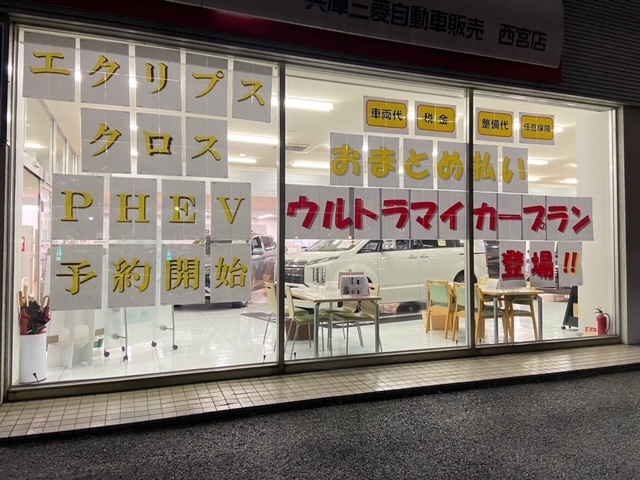 兵庫三菱自動車販売 西宮店
エクリプス
クロス
PHEV
予約開始
車両代 税金 整備代 任意保険
おまとめ払い
ウルトラマイカープラン
登場!!